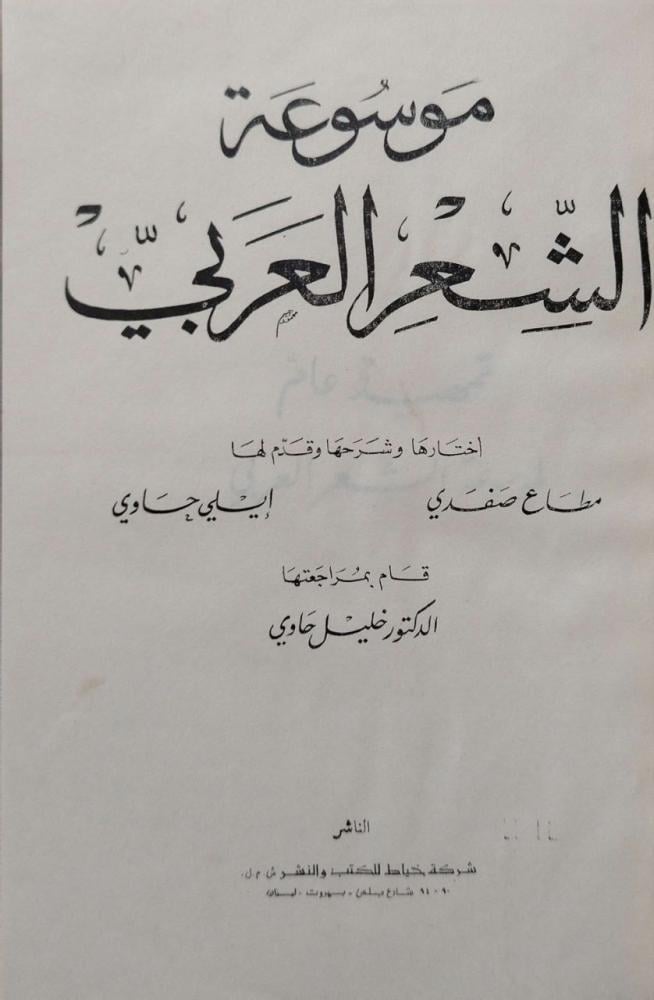 مَوسُوعَة
الشِّعْرِ العَرَبيّ
اختَارهَا وشَرَحهَا وقدّم لهَا
مطاع صَفَدي إيْلي حَاوي
قَام بمُرَاجَعتهَا
الدكتور خليْل حَاوي
الناشر
شركة خياط للكتب والنشر ش.م.ل.
٩٠ - ٩٤ شارع بلس - بيروت - لبنان